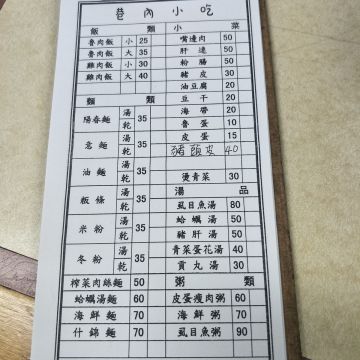 巷內小吃
飯類
魯肉飯 小 25
魯肉飯 大 35
雞肉飯 小 30
雞肉飯 大 40
麵類
陽春麵 湯 乾 35
意麵 湯 乾 35
油麵 湯 乾 35
粄條 湯 乾 35
米粉 湯 乾 35
冬粉 湯 乾 35
榨菜肉絲麵 50
蛤蠣湯麵 60
海鮮麵 70
什錦麵 70
小菜
嘴邊肉 50
肝連 50
粉腸 50
豬皮 30
油豆腐 20
豆干 20
海帶 20
魯蛋 10
皮蛋 15
豬頭皮 40
燙青菜 30
湯品
虱目魚湯 80
蛤蠣湯 50
豬肝湯 50
青菜蛋花湯 40
貢丸湯 30
粥類
皮蛋瘦肉粥 60
海鮮粥 70
虱目魚粥 90